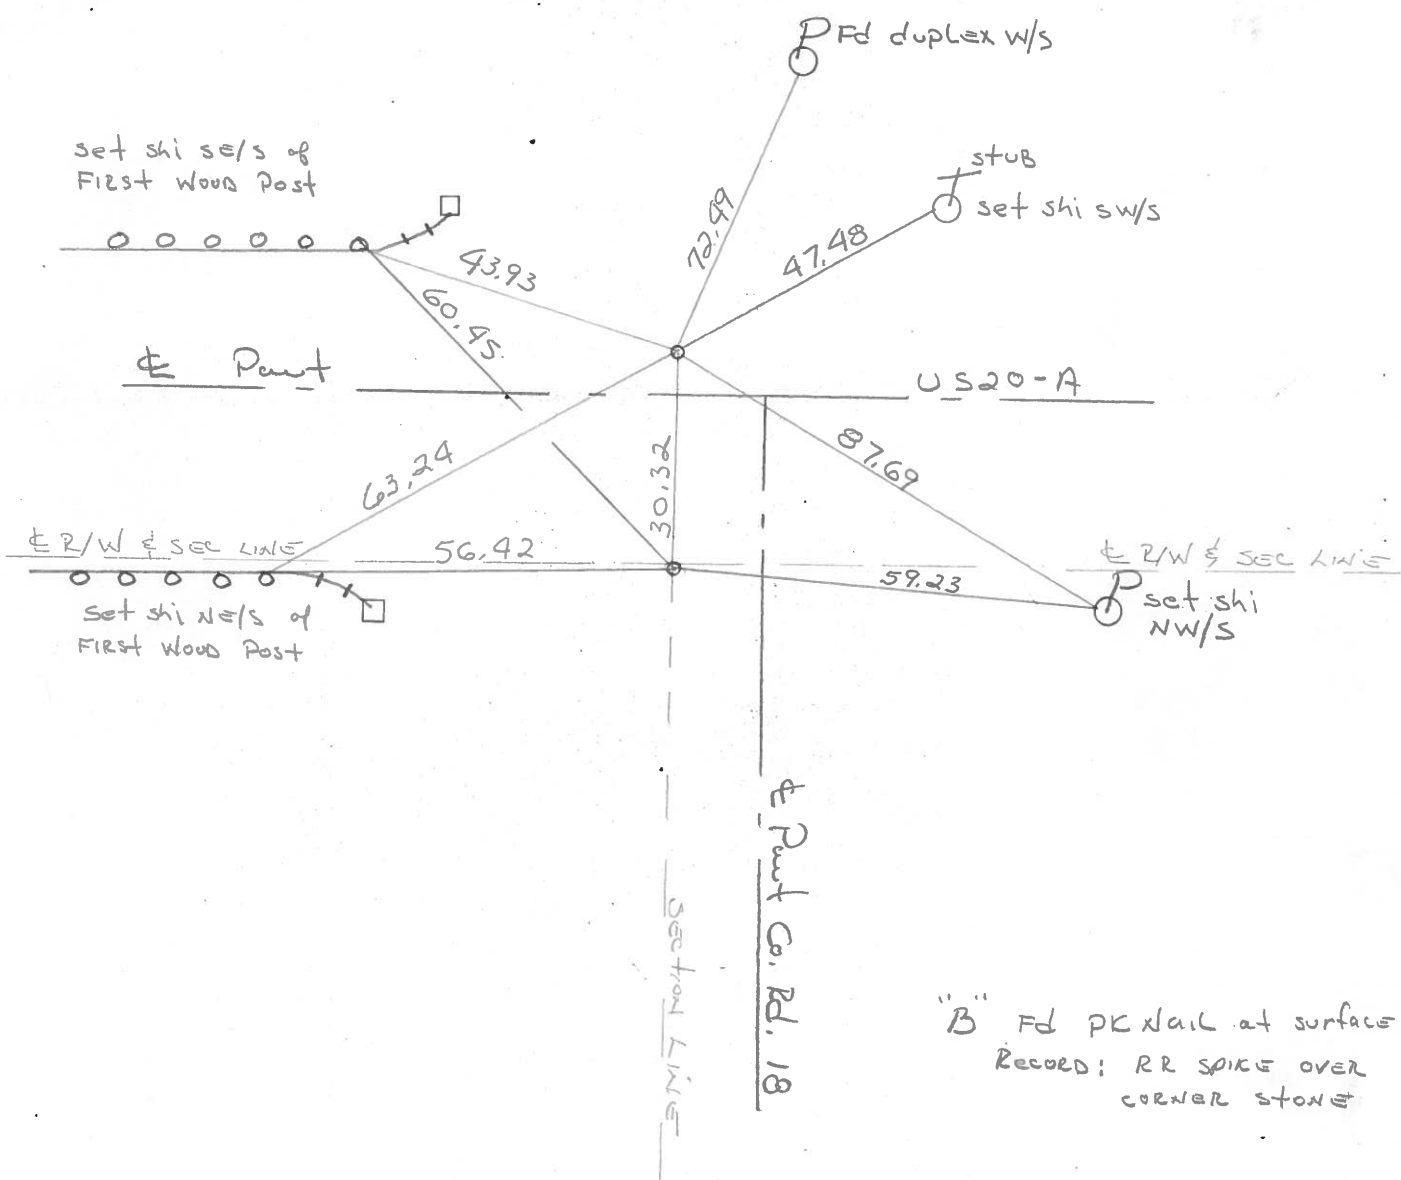 P Fd duplex W/S
set shi SE/S of
FIRST WOOD POST
STUB
set shi SW/S
72.49
47.48
43.93
60.45
℄ Pavt
US20-A
63.24
30.32
87.69
℄ R/W & SEC LINE
56.42
59.23
℄ R/W & SEC LINE
P
set shi
NW/S
set shi NE/S of
FIRST WOOD POST
℄ Pavt Co. Rd. 18
SECTION LINE
"B" Fd PK NAIL at surface
RECORD: RR SPIKE OVER
CORNER STONE